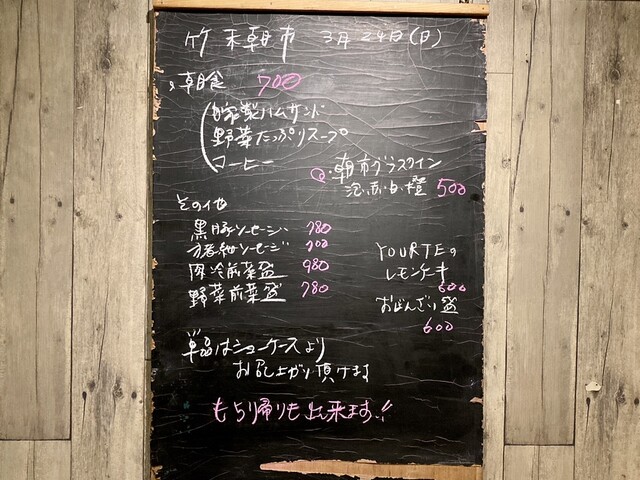 竹末朝市 3月24日(日)
朝食 700
自家製ハムサンド
野菜たっぷりスープ
コーヒー
朝市グラスワイン
泡・赤・白・橙 500
その他
黒豚ソーセージ 780
ソーセージ 700
肉冷前菜盛 980
野菜前菜盛 780
YOURTEの
レモンケーキ
600
おばんざい盛
600
単品はショーケースより
お召し上がり頂けます
もち帰りも出来ます!!